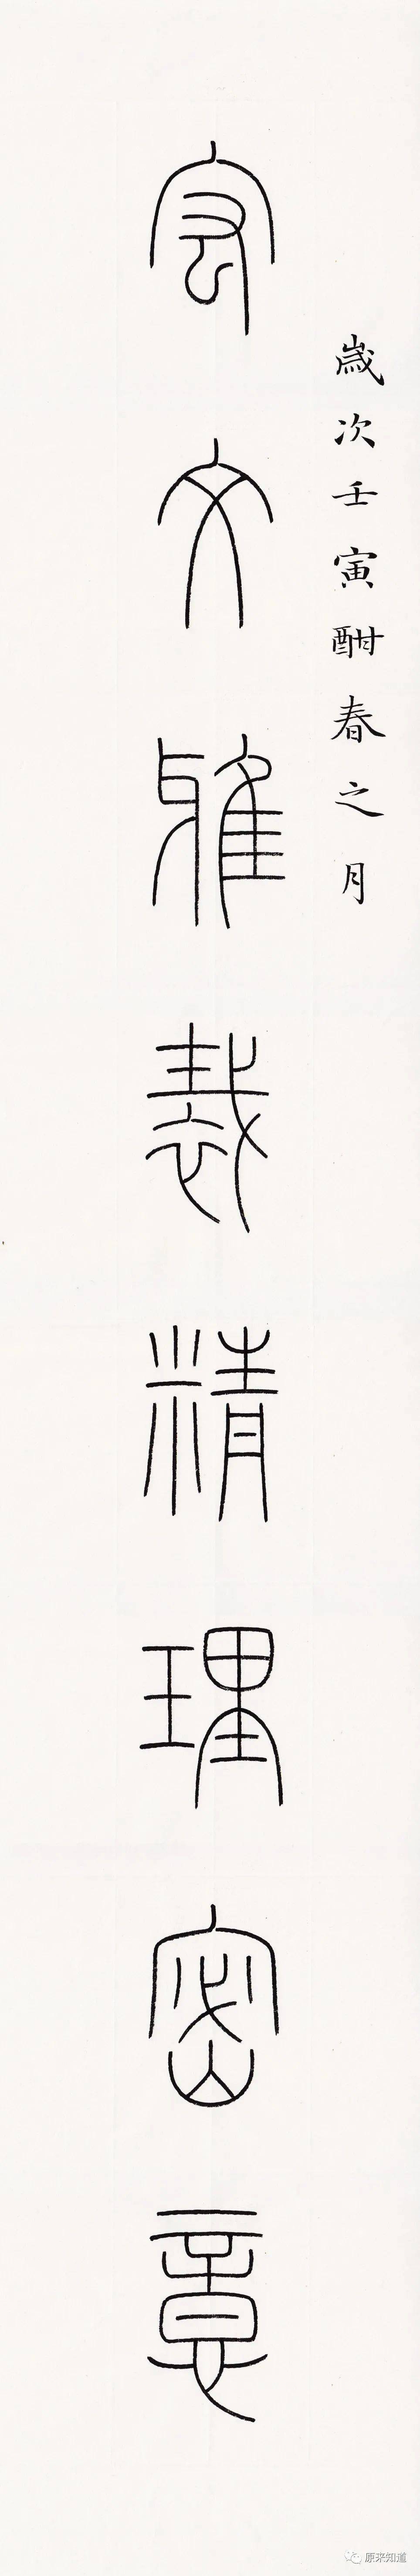 歲次壬寅酣春之月
宏文雅裁精理密意
原来知道